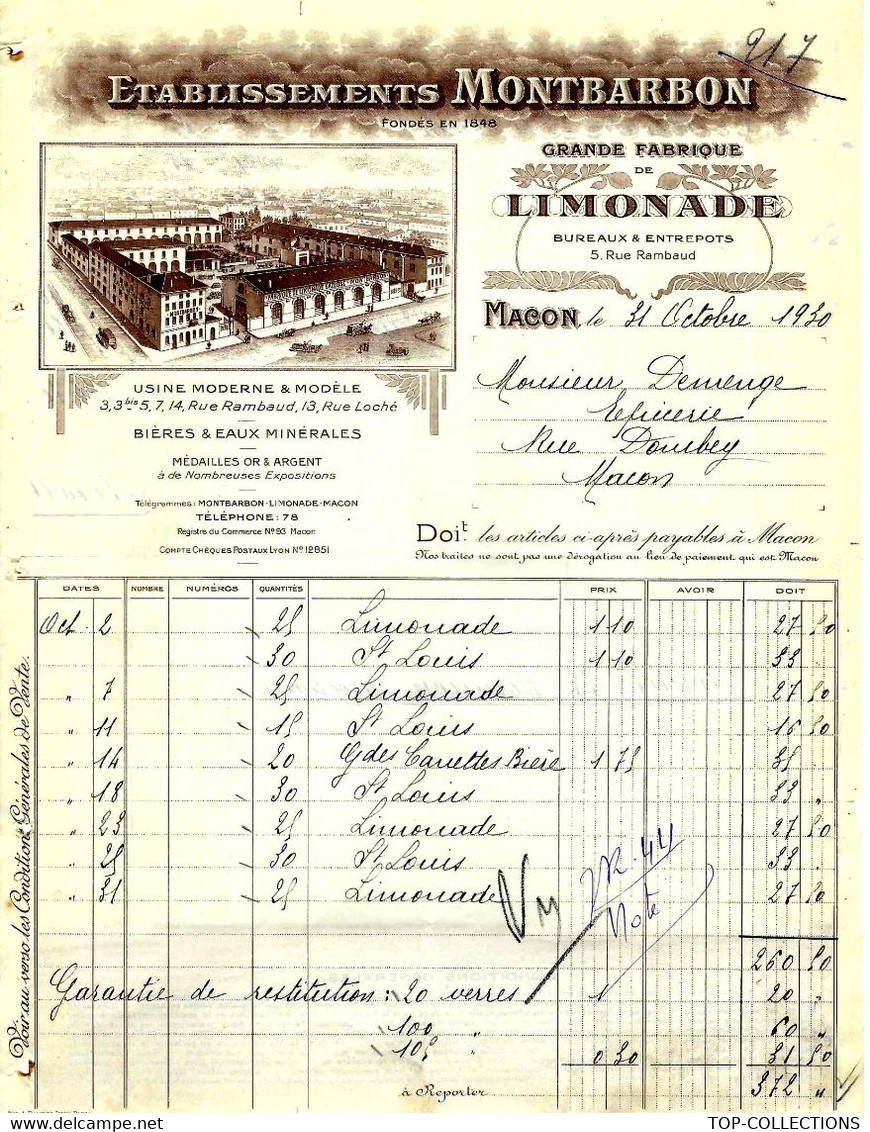 217
ETABLISSEMENTS MONTBARBON
FONDÉS EN 1848
GRANDE FABRIQUE
DE
LIMONADE
BUREAUX & ENTREPOTS
5, Rue Rambaud
MACON, le 31 Octobre 1930
Monsieur Demenge
Epicerie
Rue Dombey
Macon
MONTBARBON
USINE MODERNE & MODÈLE
3, 3bis 5, 7, 14, Rue Rambaud, 13, Rue Loché
BIÈRES & EAUX MINÉRALES
MÉDAILLES OR & ARGENT
à de Nombreuses Expositions
Télégrammes: MONTBARBON-LIMONADE-MACON
TÉLÉPHONE: 78
Registre du Commerce No 93 Macon
COMPTE CHÈQUES POSTAUX LYON No 12851
Doit les articles ci-après payables à Macon
Nos traites ne sont pas une dérogation au lieu de paiement qui est Macon
DATES NOMBRE NUMÉROS QUANTITÉS PRIX AVOIR DOIT
Oct. 2 25 Limonade 1 10 27 50
30 St Louis 1 10 33 "
" 7 25 Limonade 27 50
" 11 15 St Louis 16 50
" 14 20 Gdes Canettes Bière 1 75 35 "
" 18 30 St Louis 33 "
" 23 25 Limonade 27 50
" 25 30 St Louis 33 "
" 31 25 Limonade 27 50
Note
260 50
Garantie de restitution: 20 verres 1 20 "
100 " 60 "
105 " 0 30 31 50
à Reporter 372 "
Voir au verso les Conditions Générales de Vente.
TOP-COLLECTIONS